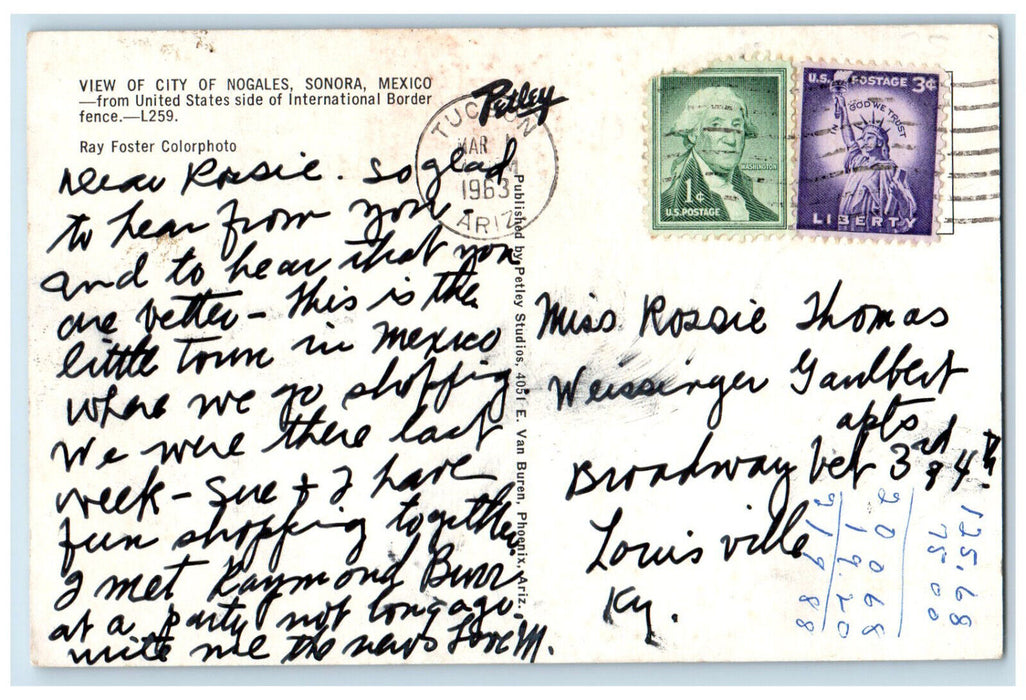 VIEW OF CITY OF NOGALES, SONORA, MEXICO
—from United States side of International Border
fence.—L259.
Ray Foster Colorphoto
Dear Rossie. So glad
to hear from you.
and to hear that you
are better – This is the
little town in Mexico
where we go shopping.
We were there last
week – Sue + I have
fun shopping together.
I met Raymond Burr
at a party not long ago.
write me the news Love M.
Petley
TUCSON
MAR 1
1963
ARIZ
Published by Petley Studios, 4051 E. Van Buren, Phoenix, Ariz.
WASHINGTON
1¢
U.S. POSTAGE
U.S. POSTAGE 3¢
IN GOD WE TRUST
LIBERTY
Miss Rossie Thomas
Weissinger Gaulbert
apts
Broadway bet 3rd & 4th
Louisville
Ky.
125.68
75 00
200 68
19.20
219 88